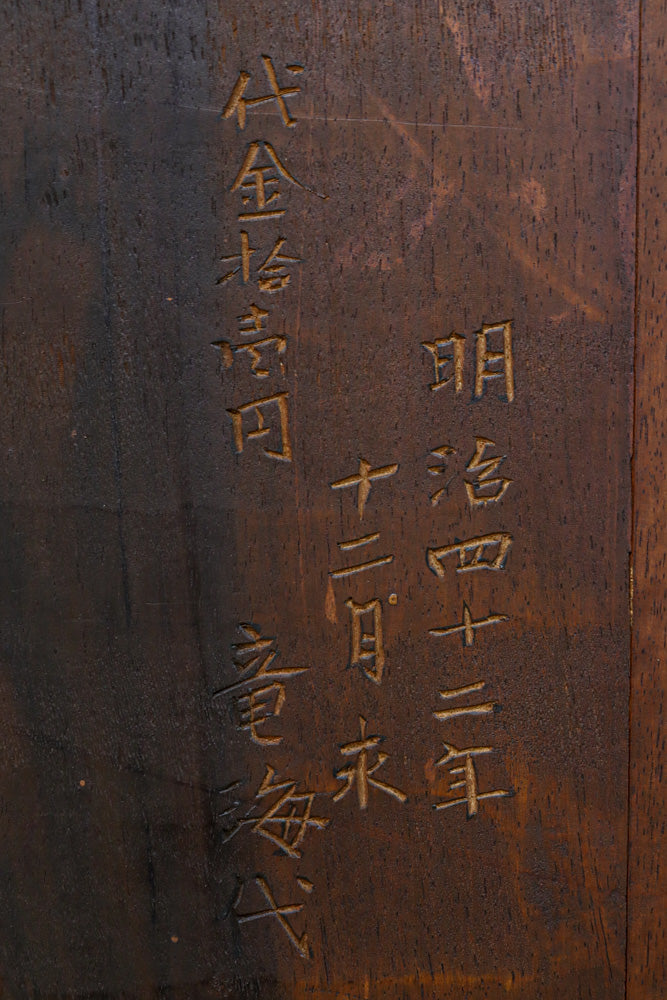 明治四十二年
十二月求
代金拾壱円 竜海代